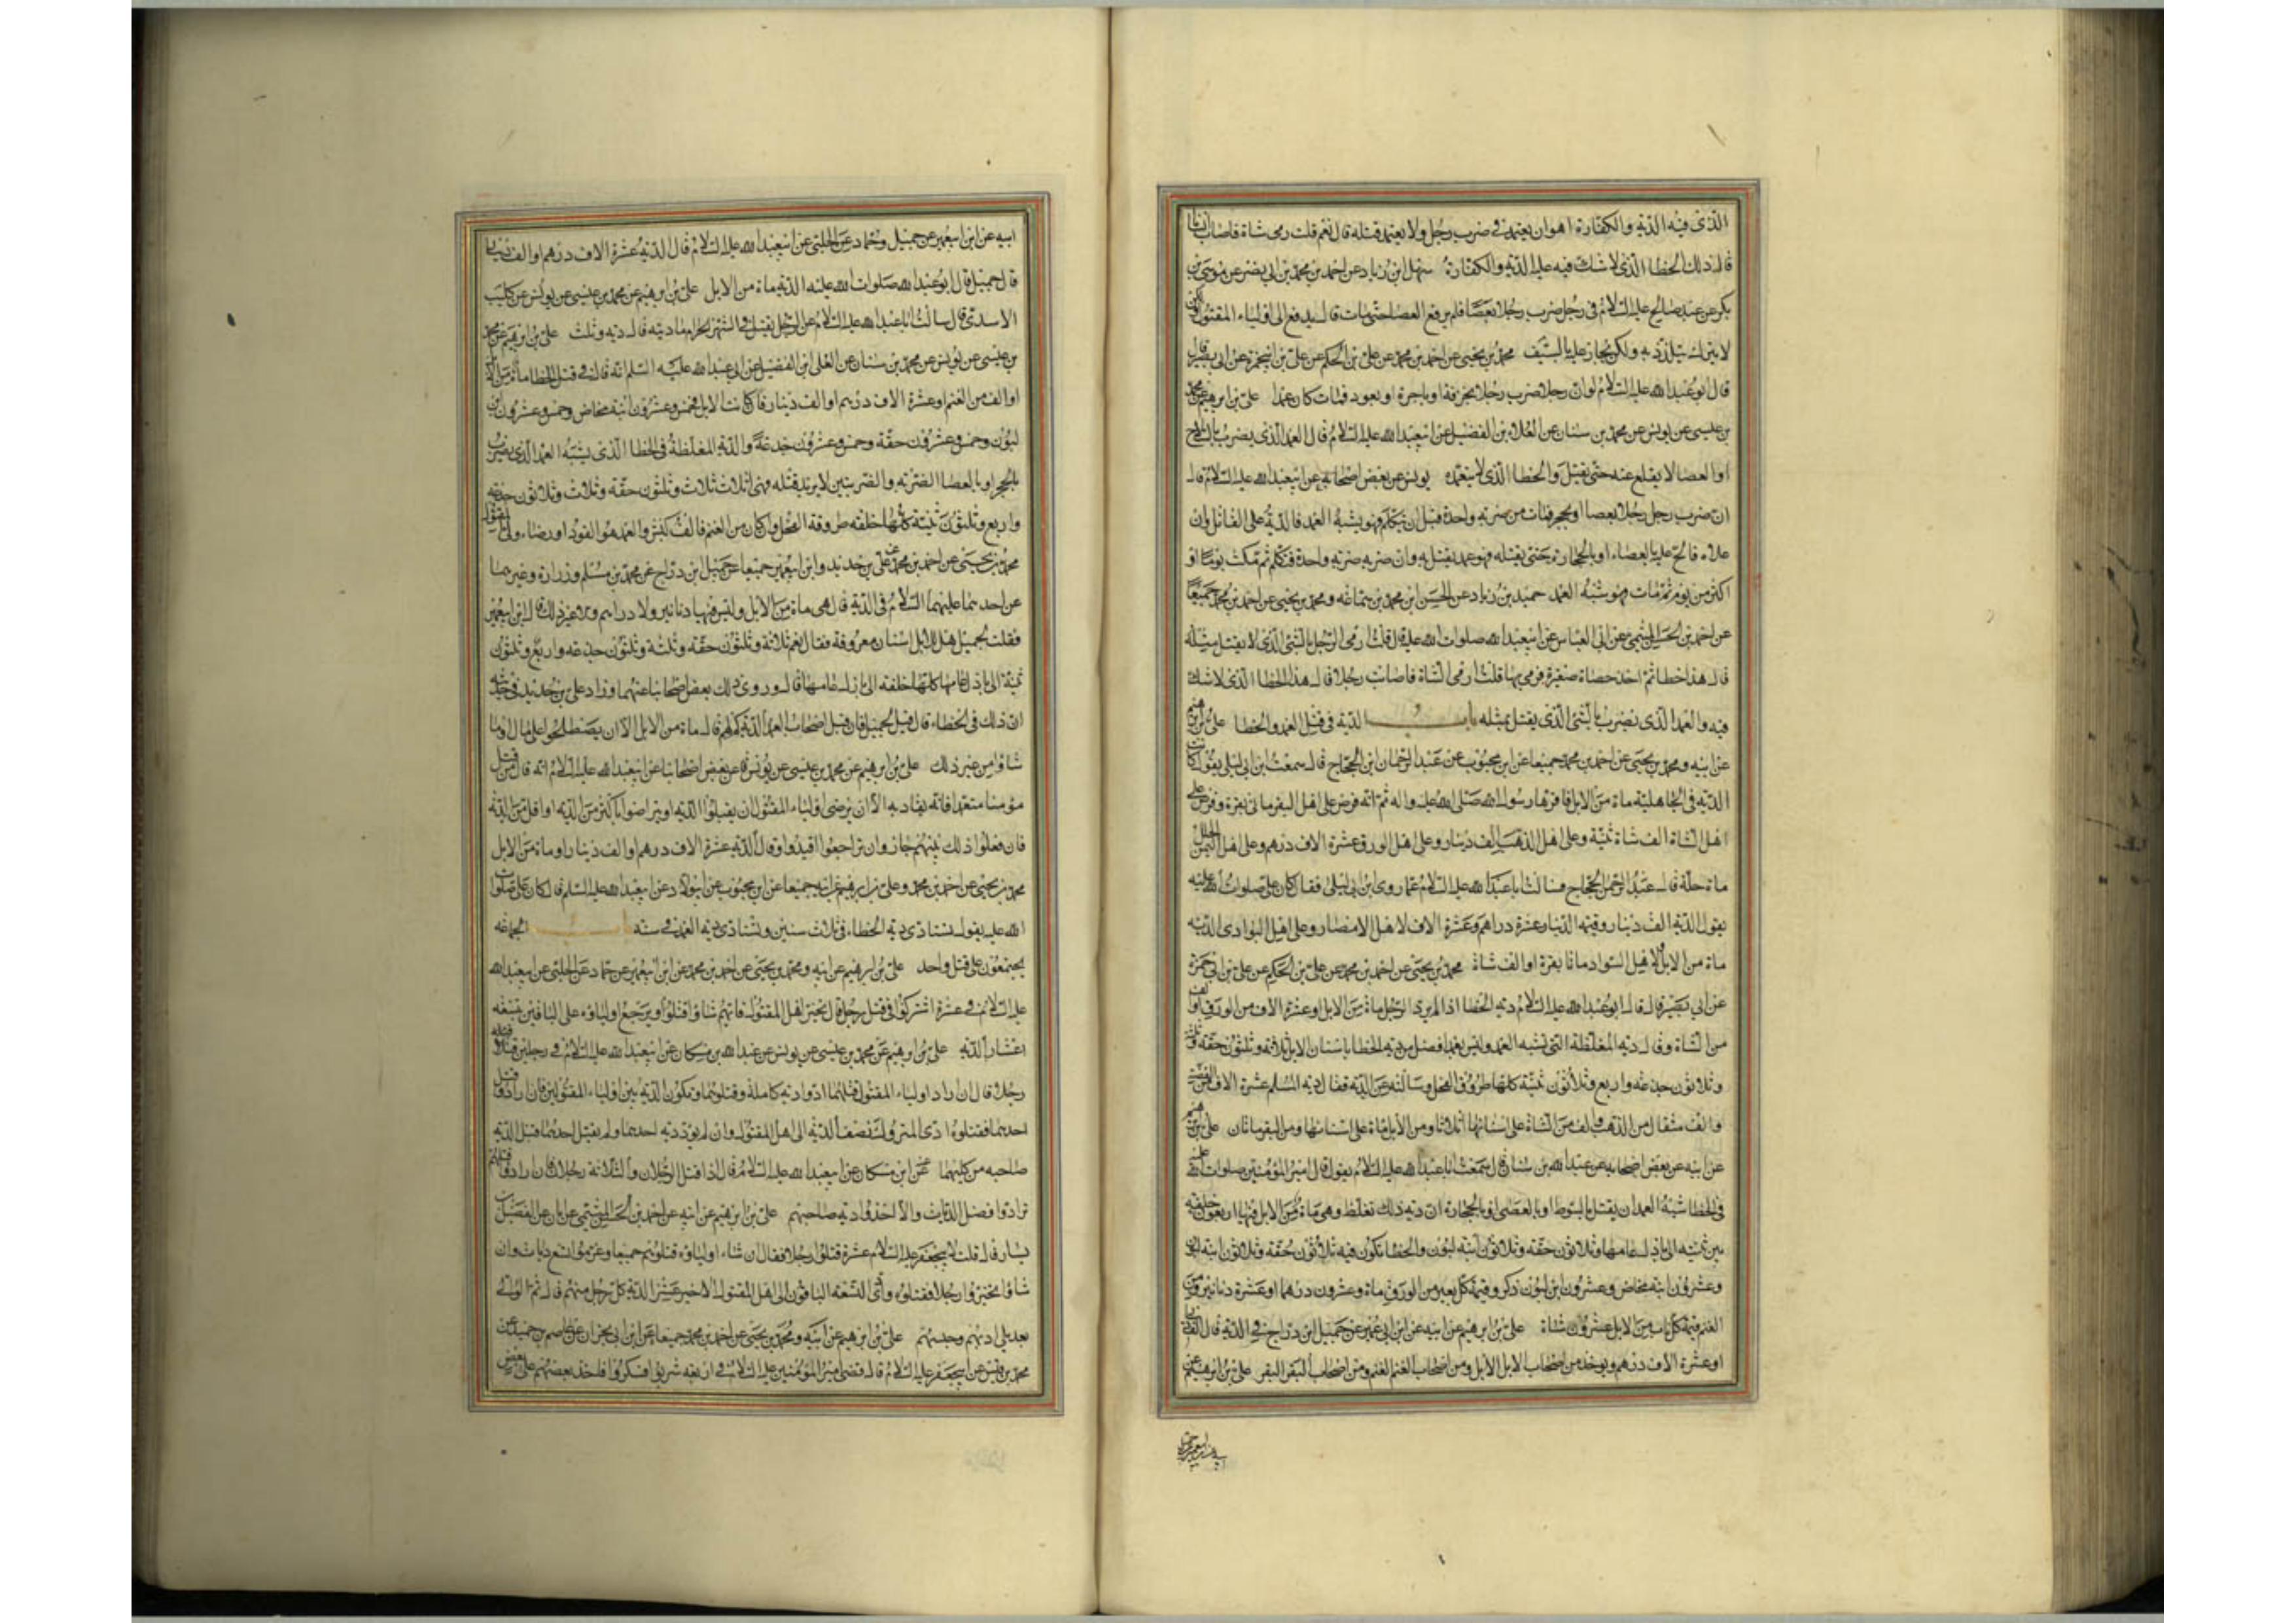 الذي فيه الدية والكفارة اهو ان يعتمد في ضرب رجل ولا يعتمد قتله قال نعم قلت رمى شاة فاصاب انسانا
قال ذلك الخطا الذي لا شك فيه عليه الدية والكفارة سهل ابن زياد عن احمد بن محمد بن ابي نصر عن موسى بن
بكر عن عبد صالح عليه السلام في رجل ضرب رجلا بعصا فلم يرفع العصا حتى مات قال يدفع الى اولياء المقتول ولكن
لا يترك يتلذذ به ولكن يجاز عليه بالسيف محمد بن يحيى عن احمد بن محمد عن علي بن الحكم عن علي بن ابيحمزة عن ابي بصير قال
قال ابو عبد الله عليه السلام لو ان رجلا ضرب رجلا بخزفة او باجرة او بعود فمات كان عمدا علي بن ابرهيم عن محمد
بن عيسى عن يونس عن محمد بن سنان عن العلاء بن الفضيل عن ابيعبد الله عليه السلام قال العمد الذي يضرب بالسلاح
او العصا لا يقلع عنه حتى يقتل والخطا الذي لا يتعمده يونس عن بعض اصحابه عن ابيعبد الله عليه السلام قال
ان ضرب رجل رجلا بعصا او بحجر فمات من ضربة واحدة قبل ان يتكلم فهو يشبه العمد فالدية على القاتل وان
علاه فالح عليه بالعصاء او بالحجارة حتى يقتله فهو عمد يقتل به وان ضربه ضربة واحدة فتكلم ثم مكث يوما او
اكثر من يوم ثم مات فهو شبه العمد حميد بن زياد عن الحسن ابن محمد بن سماعه ومحمد بن يحيى عن احمد بن محمد جميعا
عن احمد بن الحسن الميثمي عن ابي العباس عن ابيعبد الله صلوات الله عليه قال قلت ارمى الرجل بالشئ الذي لا يقتل مثله
قال هذا خطا ثم اخذ حصاة صغيرة فرمى بها قلت ارمى الشاة فاصابت رجلا قال هذا الخطا الذي لا شك
فيه والعمد الذي يضرب بالشئ الذي يقتل بمثله باب الدية في قتل العمد والخطا علي بن ابرهيم
عن ابيه ومحمد بن يحيى عن احمد بن محمد جميعا عن ابن محبوب عن عبد الرحمان ابن الحجاج قال سمعت ابن ابي ليلى يقول كانت
الدية في الجاهلية ماة من الابل فاقرها رسول الله صلى الله عليه واله ثم انه فرض على اهل البقر ماتي بقرة وفرض على
اهل الشاة الف شاة ثنية وعلى اهل الذهب الف دينار وعلى اهل الورق عشرة الاف درهم وعلى اهل اليمن الحلل
ماة حلة قال عبد الرحمن الحجاج فسالت ابا عبد الله عليه السلام عما روى ابن ابي ليلى فقال كان علي صلوات الله عليه
يقول الدية الف دينار وقيمة الدينار عشرة دراهم وعشرة الاف لاهل الامصار وعلى اهل البوادي الدية
ماة من الابل ولاهل السواد ماتا بقرة او الف شاة محمد بن يحيى عن احمد بن محمد عن علي بن الحكم عن علي بن ابي حمزة
عن ابي بصير قال قال ابو عبد الله عليه السلام دية الخطا اذا لم يرد الرجل ماة من الابل او عشرة الاف من الورق او الف
من الشاة وقال دية المغلظة التي تشبه العمد وليس بعمد افضل من دية الخطا باسنان الابل ثلاثة وثلثون حقة وثلثة
وثلاثون جذعه واربع وثلاثون ثنية كلها طروقة الفحل وسالته عن الدية فقال دية المسلم عشرة الاف من الفضة
والف مثقال من الذهب والف من الشاة على اسنانها اثلاثا ومن الابل ماة على اسنانها ومن البقر ماتان علي بن ابرهيم
عن ابيه عن بعض اصحابه عن عبد الله بن سنان قال سمعت ابا عبد الله عليه السلام يقول قال امير المؤمنين صلوات الله عليه
في الخطا شبه العمد ان يقتل بالسوط او بالعصى او بالحجارة ان دية ذلك تغلظ وهي ماة من الابل فيها اربعون خلفة
بين ثنية الى بازل عامها وثلاثون حقة وثلاثون ابنة لبون والخطا يكون فيه ثلاثون حقة وثلاثون ابنة لبون
وعشرون ابنة مخاض وعشرون ابن لبون ذكر وقيمة كل بعير من الورق ماة وعشرون درهما او عشرة دنانير ومن
الغنم قيمة كل ناب من الابل عشرون شاة علي بن ابرهيم عن ابيه عن ابن ابي عمير عن جميل ابن دراج في الدية قال الف دينار
او عشرة الاف درهم ويوخذ من اصحاب الابل الابل ومن اصحاب الغنم الغنم ومن اصحاب البقر البقر علي بن ابرهيم عن
ابيه عن ابن ابيعمير عن جميل وحماد عن الحلبي عن ابيعبد الله عليه السلام قال الدية عشرة الاف درهم او الف دينار
قال جميل قال ابو عبد الله صلوات الله عليه الدية ماة من الابل علي بن ابرهيم عن محمد بن عيسى عن يونس عن كليب
الاسدي قال سالت ابا عبد الله عليه السلام عن الرجل يقتل في الشهر الحرام ما ديته قال دية وثلث علي بن ابرهيم عن محمد
بن عيسى عن يونس عن محمد بن سنان عن العلى ابن الفضيل عن ابي عبد الله عليه السلم انه قال في قتل الخطا ماة من الابل
او الف من الغنم او عشرة الاف درهم او الف دينار فان كانت الابل فخمس وعشرون ابنة مخاض وخمس وعشرون ابن
لبون وخمس وعشرون حقة وخمس وعشرون جذعة والدية المغلظة في الخطا الذي يشبه العمد الذي يضرب
بالحجر او بالعصا الضربة والضربتين لا يريد قتله فهي اثلاث ثلاث وثلثون حقة وثلاث وثلاثون جذعه
واربع وثلثون ثنية كلها خلفه طروقة الفحل وان كان من الغنم فالف كبش والعمد هو القود او رضاء ولي المقتول
محمد بن يحيى عن احمد بن محمد عن علي بن حديد وابن ابيعمير جميعا عن جميل ابن دراج عن محمد بن مسلم وزرارة وغيرهما
عن احدهما عليهما السلام في الدية قال هي ماة من الابل وليس فيها دنانير ولا دراهم ولا غير ذلك قال ابن ابيعمير
فقلت لجميل هل للابل اسنان معروفة فقال نعم ثلاثة وثلثون حقة وثلثة وثلثون جذعه واربع وثلثون
ثنية الى بازل عامها كلها خلفه الى بازل عامها قال وروى ذلك بعض اصحابنا عنهما وزاد علي بن حديد في حديثه
ان ذلك في الخطاء قال قيل لجميل فان قبل اصحاب العمد الدية كم لهم قال ماة من الابل الا ان يصطلحوا على مال او ما
شاؤا من غير ذلك علي بن ابرهيم عن محمد بن عيسى عن يونس عن بعض اصحابنا عن ابيعبد الله عليه السلام انه قال من قتل
مؤمنا متعمدا فانه يقاد به الا ان يرضى اولياء المقتول ان يقبلوا الديه او يتراضوا باكثر من الديه او اقل من الدية
فان فعلوا ذلك بينهم جاز وان تراجعوا اقيدوا وقال الدية عشرة الاف درهم او الف دينار او ماة من الابل
محمد بن يحيى عن احمد بن محمد وعلي بن ابرهيم عن ابيه جميعا عن ابن محبوب عن ابيولاد عن ابيعبد الله عليه السلم قال كان علي صلوات
الله عليه يقول تستادى دية الخطاء في ثلاث سنين وتستادى دية العمد في سنة باب الجماعه
يجتمعون على قتل واحد علي بن ابرهيم عن ابيه ومحمد بن يحيى عن احمد بن محمد عن ابن ابيعمير عن حماد عن الحلبي عن ابيعبد الله
عليه السلام في عشرة اشتركوا في قتل رجل قال يخير اهل المقتول فايهم شاؤا قتلوا ويرجع اولياؤه على الباقين بتسعة
اعشار الدية علي بن ابرهيم عن محمد بن عيسى عن يونس عن عبد الله بن مسكان عن ابيعبد الله عليه السلام في رجلين قتلا
رجلا قال ان اراد اولياء المقتول قتلهما ادوا دية كاملة وقتلوهما وتكون الدية بين اولياء المقتولين فان ارادوا قتل
احدهما فقتلوه ادى المتروك نصف الدية الى اهل المقتول وان لم يؤد دية احدهما ولم يقتل احدهما قبل الدية
صاحبه من كليهما عن ابن مسكان عن ابيعبد الله عليه السلام قال اذا قتل الرجلان والثلاثة رجلا فان ارادوا قتلهم
ترادوا فضل الديات والا اخذوا دية صاحبهم علي بن ابرهيم عن ابيه عن احمد بن الحسن الميثمي عن ابان عن الفضيل بن
يسار قال قلت لابيجعفر عليه السلام عشرة قتلوا رجلا فقال ان شاء اولياؤه قتلوهم جميعا وغرموا تسع ديات وان
شاؤا تخيروا رجلا فقتلوه وادى التسعة الباقون الى اهل المقتول الاخير عشر الدية كل رجل منهم قال ثم الوالي
بعد يلي ادبهم وحبسهم علي بن ابرهيم عن ابيه ومحمد بن يحيى عن احمد بن محمد جميعا عن ابن ابي نجران عن عاصم بن حميد عن
محمد بن قيس عن ابيجعفر عليه السلام قال قضى امير المؤمنين عليه السلام في اربعه شربوا فسكروا فاخذ بعضهم على بعض